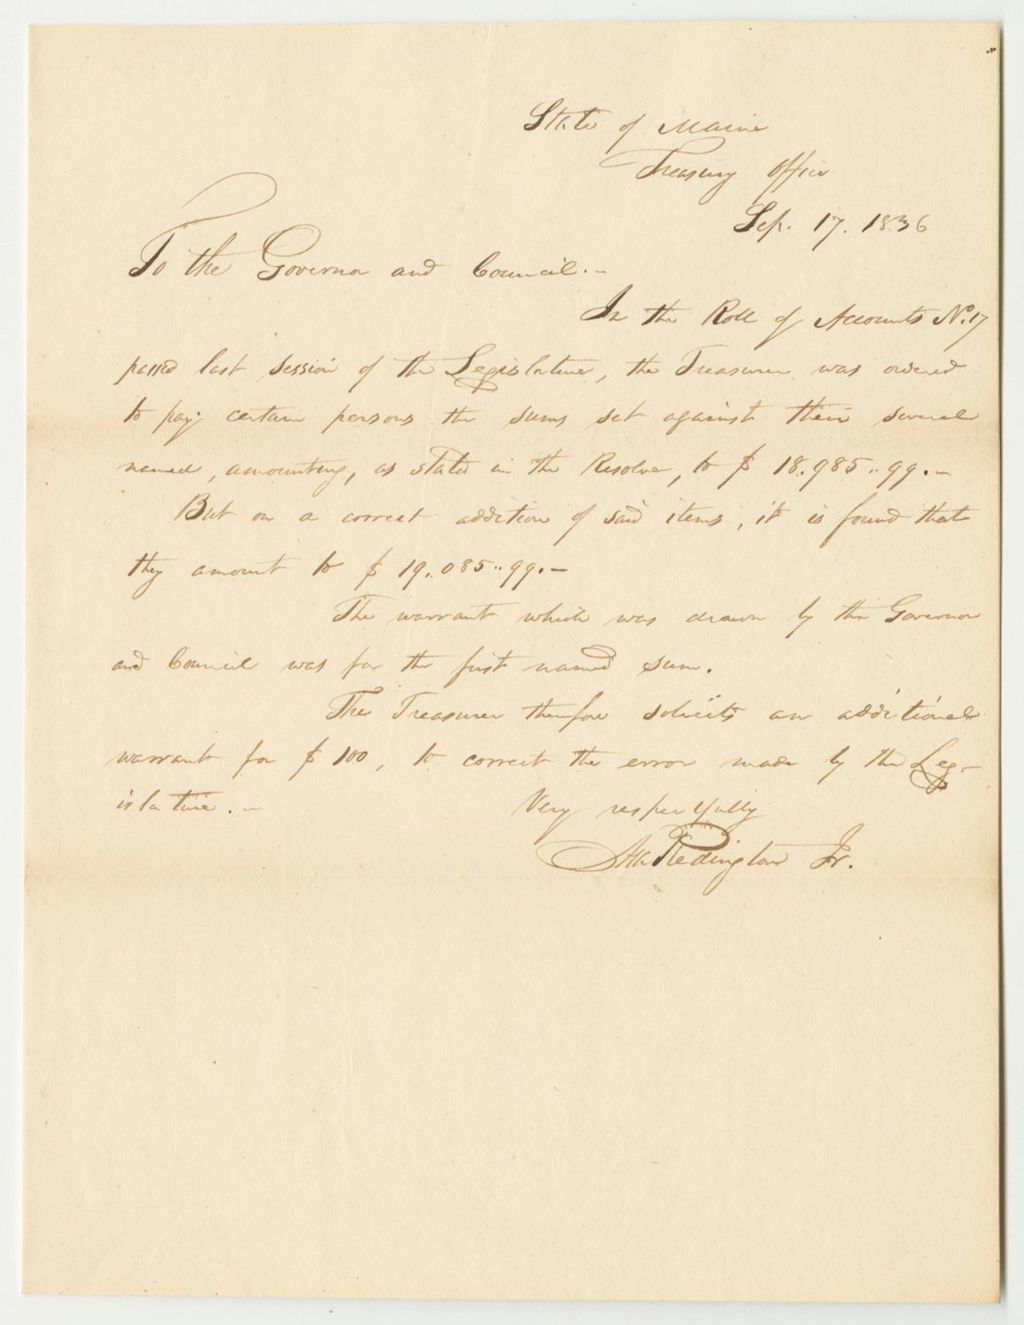 State of Maine
Treasury Office
Sep. 17. 1836
To the Governor and Council.–
In the Roll of Accounts No. 17
passed last session of the Legislature, the Treasurer was ordered
to pay certain persons the sums set against their several
names, amounting, as stated in the Resolve, to $ 18.985..99.–
But on a correct addition of said items, it is found that
they amount to $ 19..085..99.–
The warrant which was drawn by the Governor
and Council was for the first named sum.
The Treasurer therefore solicits an additional
warrant for $ 100, to correct the error made by the Leg–
islature.–
Very respectfully
Asa Redington Jr.